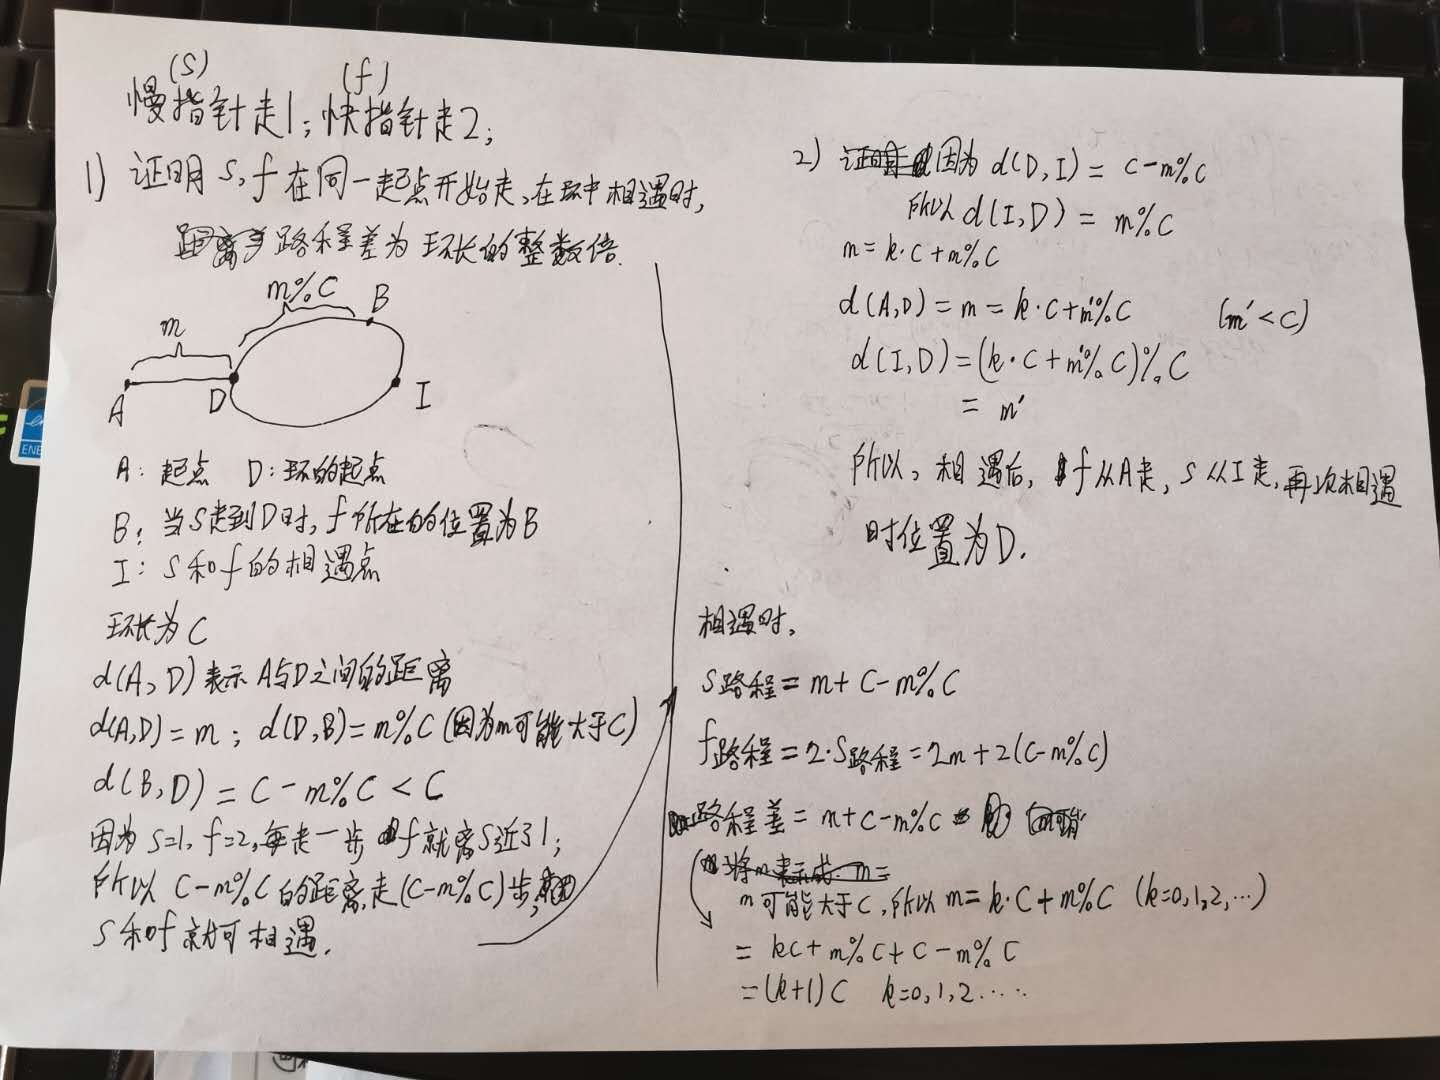 (s)
(f)
慢指针走1; 快指针走2;
1) 证明 s, f 在同一起点开始走, 在环中相遇时,
距离 路程差为环长的整数倍.
m%C
B
m
A
D
I
A: 起点 D: 环的起点
B: 当s走到D时, f所在的位置为B
I: s和f的相遇点
环长为C
d(A, D) 表示A与D之间的距离
d(A,D) = m; d(D,B) = m%C (因为m可能大于C)
d(B,D) = C - m%C < C
因为 s=1, f=2, 每走一步 f就离s近了1;
所以 C-m%C 的距离, 走(C-m%C)步,
s和f就可相遇.
2) 证明 因为 d(D, I) = C-m%C
所以 d(I, D) = m%C
m = k·C + m%C
d(A,D) = m = k·C + m'%C (m' < C)
d(I,D) = (k·C + m'%C)%C
= m'
所以, 相遇后, f从A走, s从I走, 再次相遇
时位置为D.
相遇时,
s路程 = m + C - m%C
f路程 = 2·s路程 = 2m + 2(C-m%C)
路程差 = m + C - m%C = 可能
将m表示成 m =
m可能大于C, 所以 m = k·C + m%C (k=0,1,2,…)
= kC + m%C + C - m%C
= (k+1)C k=0,1,2……
ENE